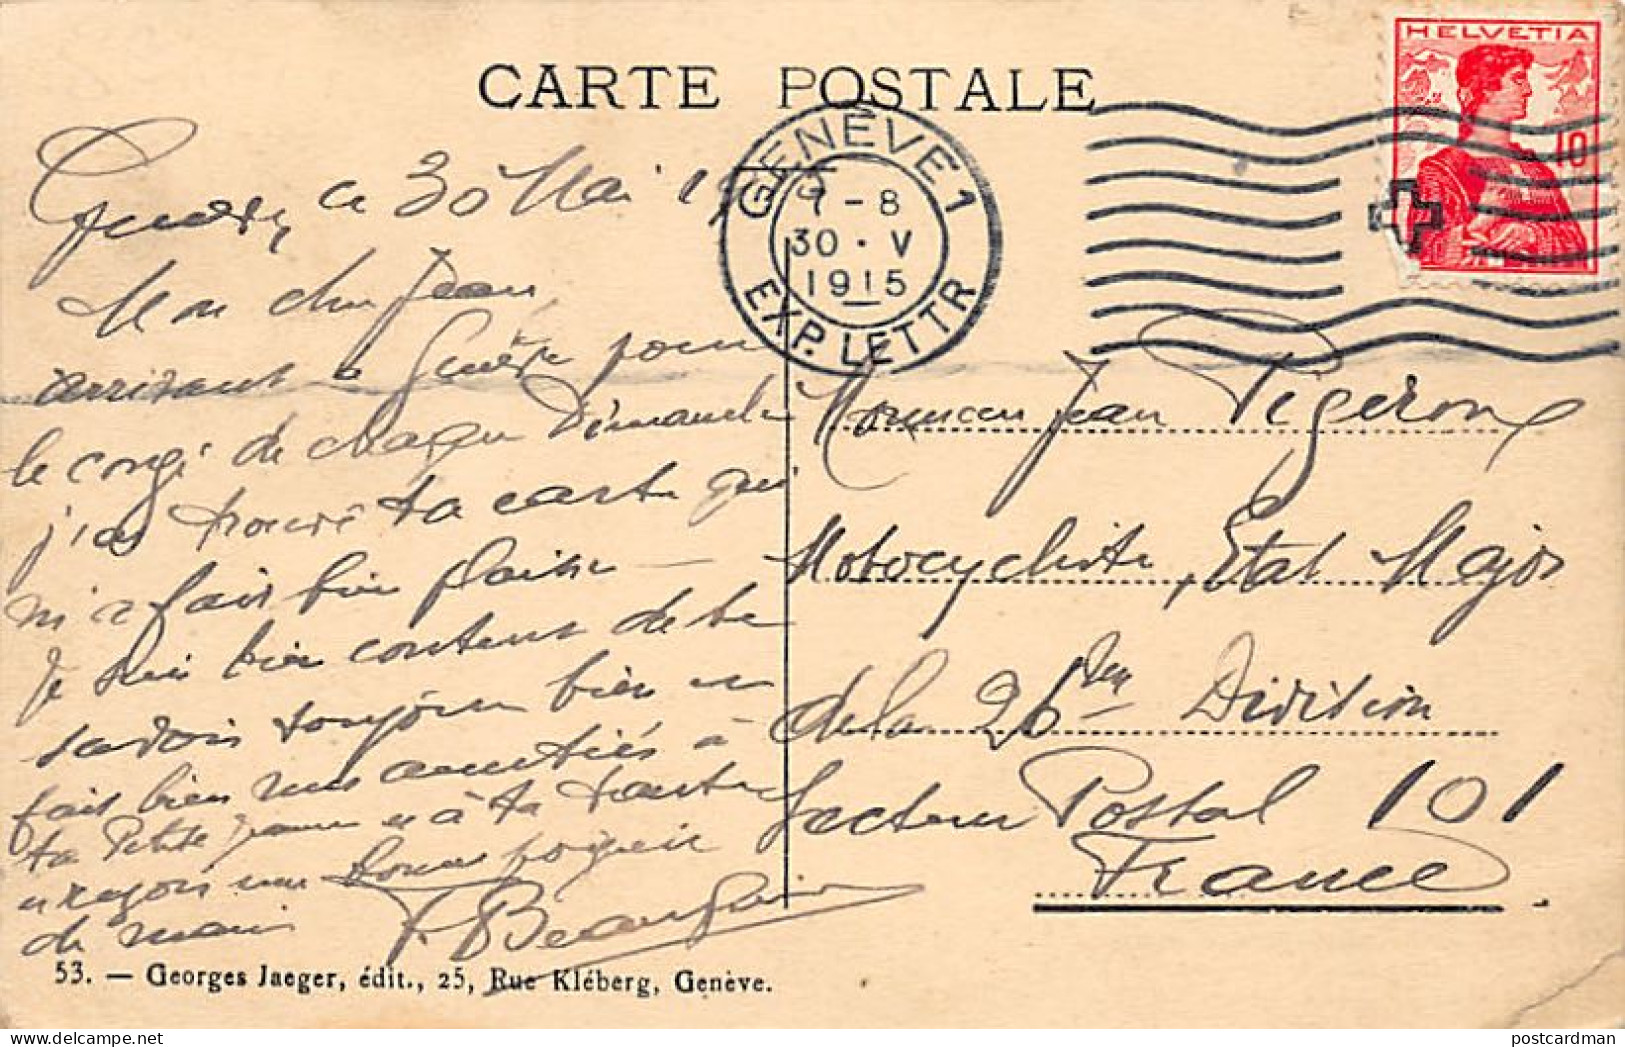 CARTE POSTALE
HELVETIA
10
GENÈVE 1
7-8
30 · V
1915
EXP. LETTR
Genève, ce 30 Mai 19
Mon cher Jean
arrivant à Genève pour
le congé de chaque Dimanche
j'ai trouvé ta carte qui
m'a fait bien plaisir
Je suis bien content de te
savoir toujours bien
fais bien mes amitiés à
ta Petite et à ta tante
reçois une bonne poignée
de main
Monsieur Jean Pigeron
Motocycliste, Etat Major
de la 26ème Division
Secteur Postal 101
France
53. — Georges Jaeger, édit., 25, Rue Kléberg, Genève.
postcardman